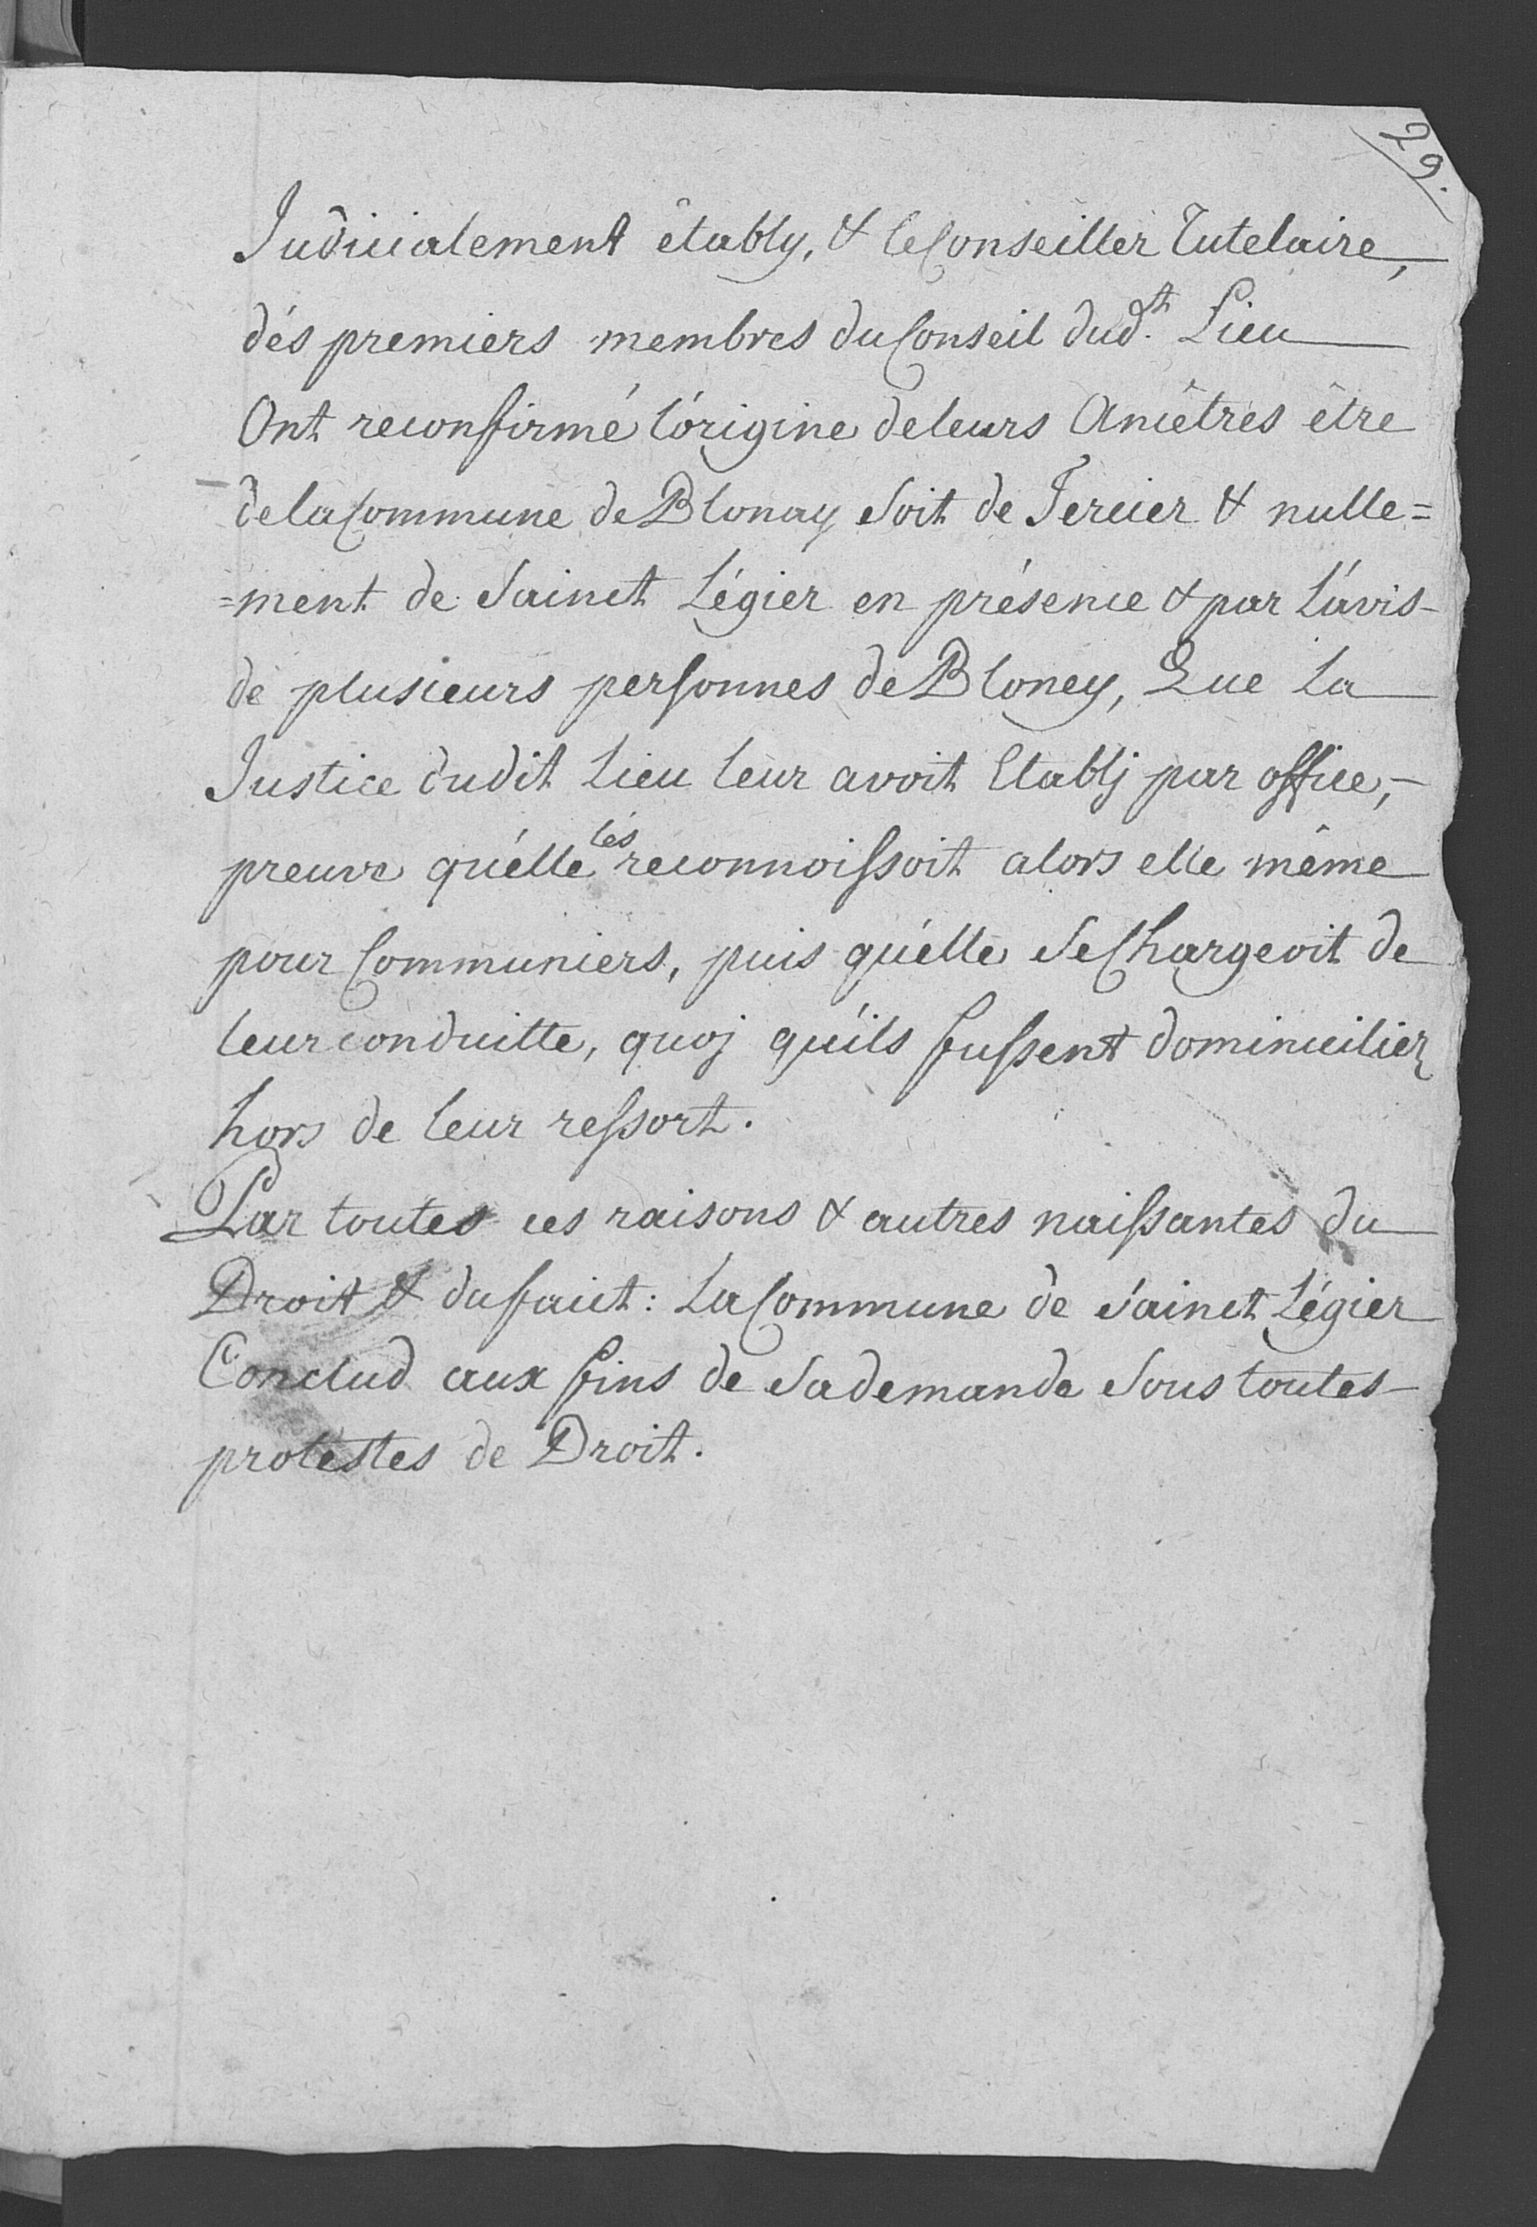 29.
Judicialement établÿ, & le Conseiller Tutelaire,
dés premiers membres du Conseil dud.t Lieu
Ont reconfirmé l'órigine de leurs Ancêtres être
de la Commune de Blonay soit de Tercier & nulle=
=ment de Sainct Légier en présence & par l'ávis
de plusieurs personnes de Bloney, Que La
Justice dudit Lieu leur avoit Etablj par office,
preuve qu'élle lés reconnoissoit alors elle même
pour Communiers, puis qu'élle se Chargeoit de
leur conduitte, quoj qu'ils fussent dominiciliez
hors de leur ressort.
Par toutes ces raisons & autres naissantes du
Droit & du faict: La Commune de Sainct Légier
Conclud aux fins de sa demande sous toutes
protestes de Droit.